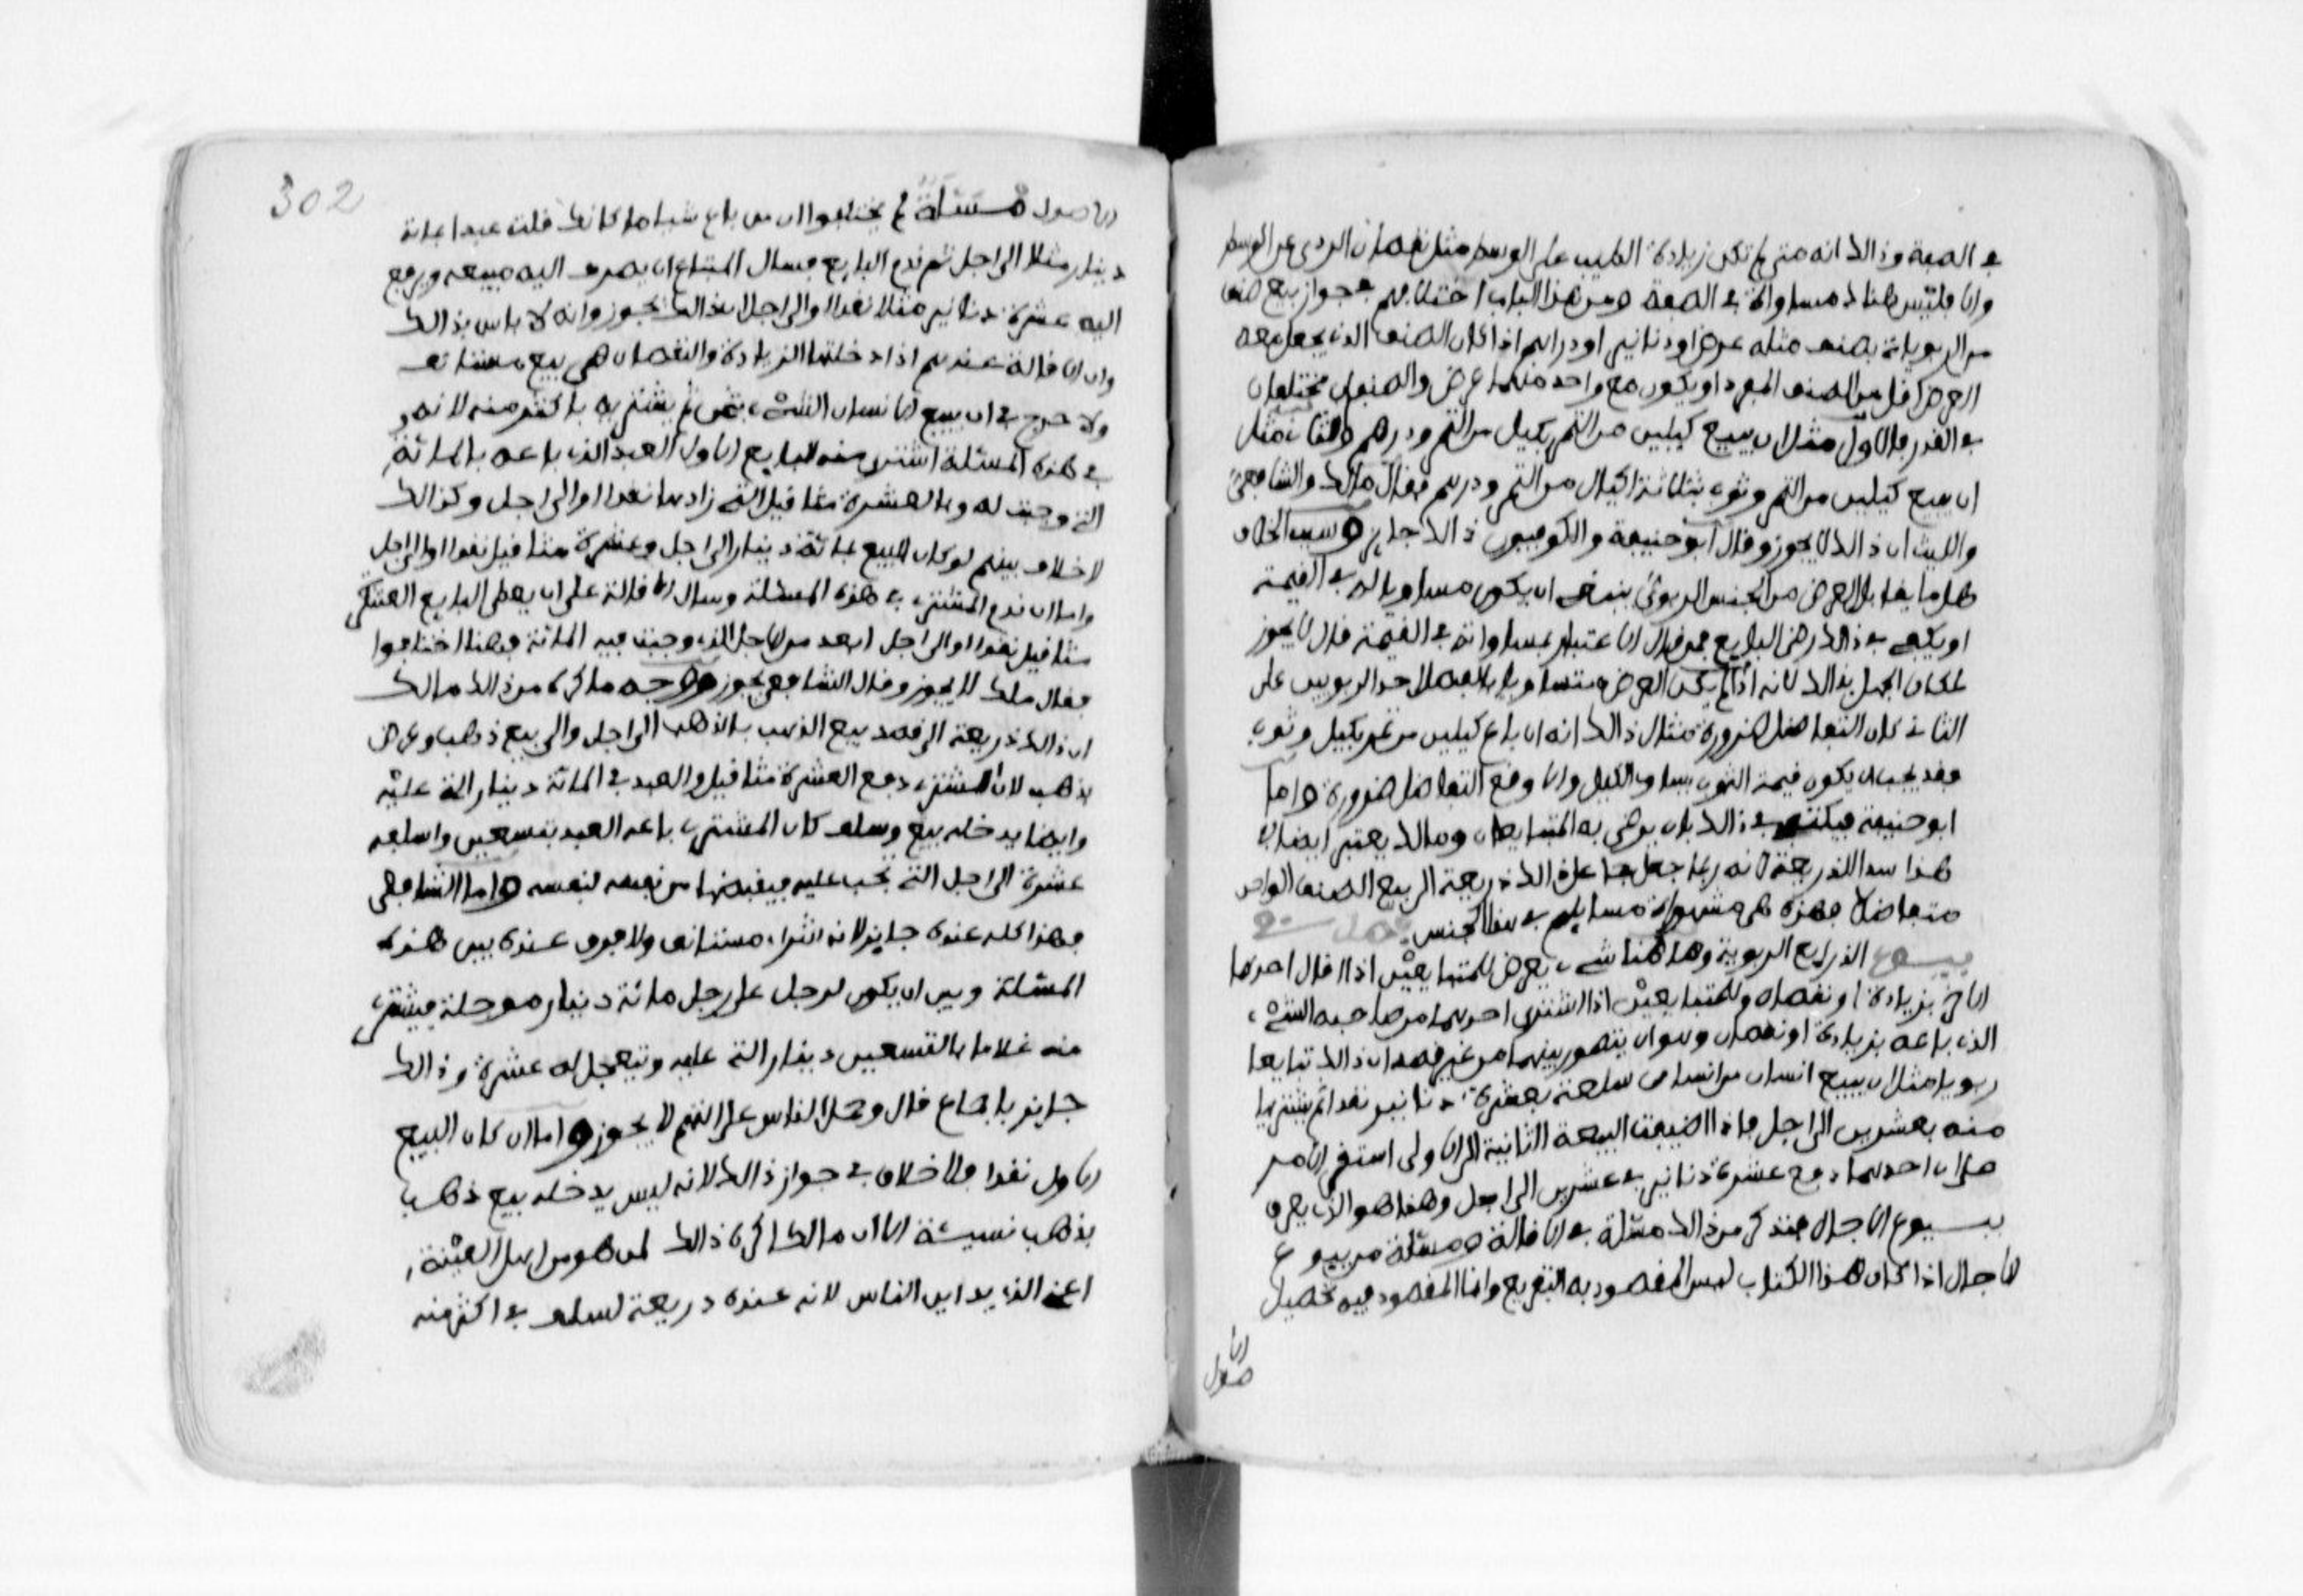 في الصفة وذالك انه متى لم تكن زيادة الطيب على الوسط مثل نقصان الردى عن الوسط
والا فليس هناك مساواة في الصفة ومن هذا الباب اختلافهم في جواز بيع صنف
من الربويات بصنف مثله عرض او دنانير او دراهم اذا كان الصنف الذي يجعل معه
العرض اقل من الصنف المفرد او يكون مع واحد منهما عرض والصنفان مختلفان
في القدر فالاول مثل ان يبيع كيلين من التمر بكيل من التمر ودرهم والثاني مثل
ان يبيع كيلين من التمر وثوب بثلاثة اكيال من التمر ودرهم فقال مالك والشافعي
والليث ان ذالك لا يجوز وقال ابو حنيفة والكوفيون ذالك جايز وسبب الخلاف
هل ما يقابل العرض من الجنس الربوي ينبغي ان يكون مساويا له في القيمة
او يكفي في ذالك رضى البايع فمن قال الاعتبار بمساواته في القيمة قال لا يجوز
لمكان الجهل بذالك لانه اذا لم يكن العرض متساويا لفضل احد الربويين على
الثاني كان التفاضل ضرورة مثال ذالك انه ان باع كيلين من تمر بكيل وثوب
فقد يجب ان يكون قيمة الثوب يساوي الكيل والا وقع التفاضل ضرورة واما
ابو حنيفة فيكتفي في ذالك بان يرضى به المتبايعان ومالك يعتبر ايضا في
هذا سد الذريعة لانه ربما جعل جاعل ذالك ذريعة الى بيع الصنف الواحد
متفاضلا فهذه هي مشهورات مسايلهم في هذا الجنس فصل في
بيوع الذرايع الربوية وها هنا شيء يعرض للمتبايعين اذا قال احدهما
الاخر بزيادة او نقصان وللمتبايعين اذا اشترى احدهما من صاحبه الشيء
الذي باعه بزيادة او نقصان وهو ان يتصور بينهما من غير قصد ان ذالك تبايعا
ربويا مثل ان يبيع انسان من انسان سلعة بعشرة دنانير نقدا ثم يشتريها
منه بعشرين الى اجل فاذا اضيفت البيعة الثانية الى الاولى استقر الامر
على ان احدهما دفع عشرة دنانير في عشرين الى اجل وهذا هو الذي يعرف
ببيوع الاجال فنذكر من ذالك مسئلة في الاقالة ومسئلة من بيوع
الاجال اذا كان هذا الكتاب ليس المقصود به التفريع وانما المقصود فيه تحصيل
الاصول
302
الاصول مسئلة لم يختلفوا ان من باع شيا ما كانك قلت عبدا بماية
دينار مثلا الى اجل ثم ندم البايع فسال المبتاع ان يصرف اليه مبيعه ويدفع
اليه عشرة دنانير مثلا نقدا او الى اجل ان ذالك يجوز وانه لا باس بذالك
وان الاقالة عندهم اذا دخلتها الزيادة والنقصان هي بيع مستانف
ولا حرج في ان يبيع الانسان الشيء بثمن ثم يشتريه باكثر منه لانه
في هذه المسئلة اشترى منه البايع الاول العبد الذي باعه بالمائة
التي وجبت له وبالعشرة مثاقيل التي زادها نقدا او الى اجل وكذالك
لا خلاف بينهم لو كان البيع بمائة دينار الى اجل وعشرة مثاقيل نقدا او الى اجل
واما ان ندم المشتري في هذه المسئلة وسال الاقالة على ان يعطى البايع العشرة
مثاقيل نقدا او الى اجل ابعد من الاجل الذي وجبت فيه المائة فهنا اختلفوا
فقال ملك لا يجوز وقال الشافعي يجوز ووجه ما كره من ذالك مالك
ان ذالك ذريعة الى قصد بيع الذهب بالذهب الى اجل والى بيع ذهب وعرض
بذهب لان المشتري دفع العشرة مثاقيل والعبد في المائة دينار التي عليه
وايضا يدخله بيع وسلف كان المشتري باعه العبد بتسعين واسلفه
عشرة الى اجل التي يجب عليه فيقبضها من نفسه لنفسه واما الشافعي
فهذا كله عنده جايز لانه اشراء مستانف ولا فرق عنده بين هذه
المسئلة وبين ان يكون لرجل على رجل مائة دينار موجلة فيشتري
منه غلاما بالتسعين دينار التي عليه ويتعجل له عشرة وذالك
جايز باجماع قال وحمل الناس على التهم لا يجوز واما ان كان البيع
الاول نقدا فلا خلاف في جواز ذالك لانه ليس يدخله بيع ذهب
بذهب نسيئة الا ان مالكا كره ذالك لمن هو من اهل العينة
اعني الذي يداين الناس لانه عنده ذريعة لسلف في اكثر منه